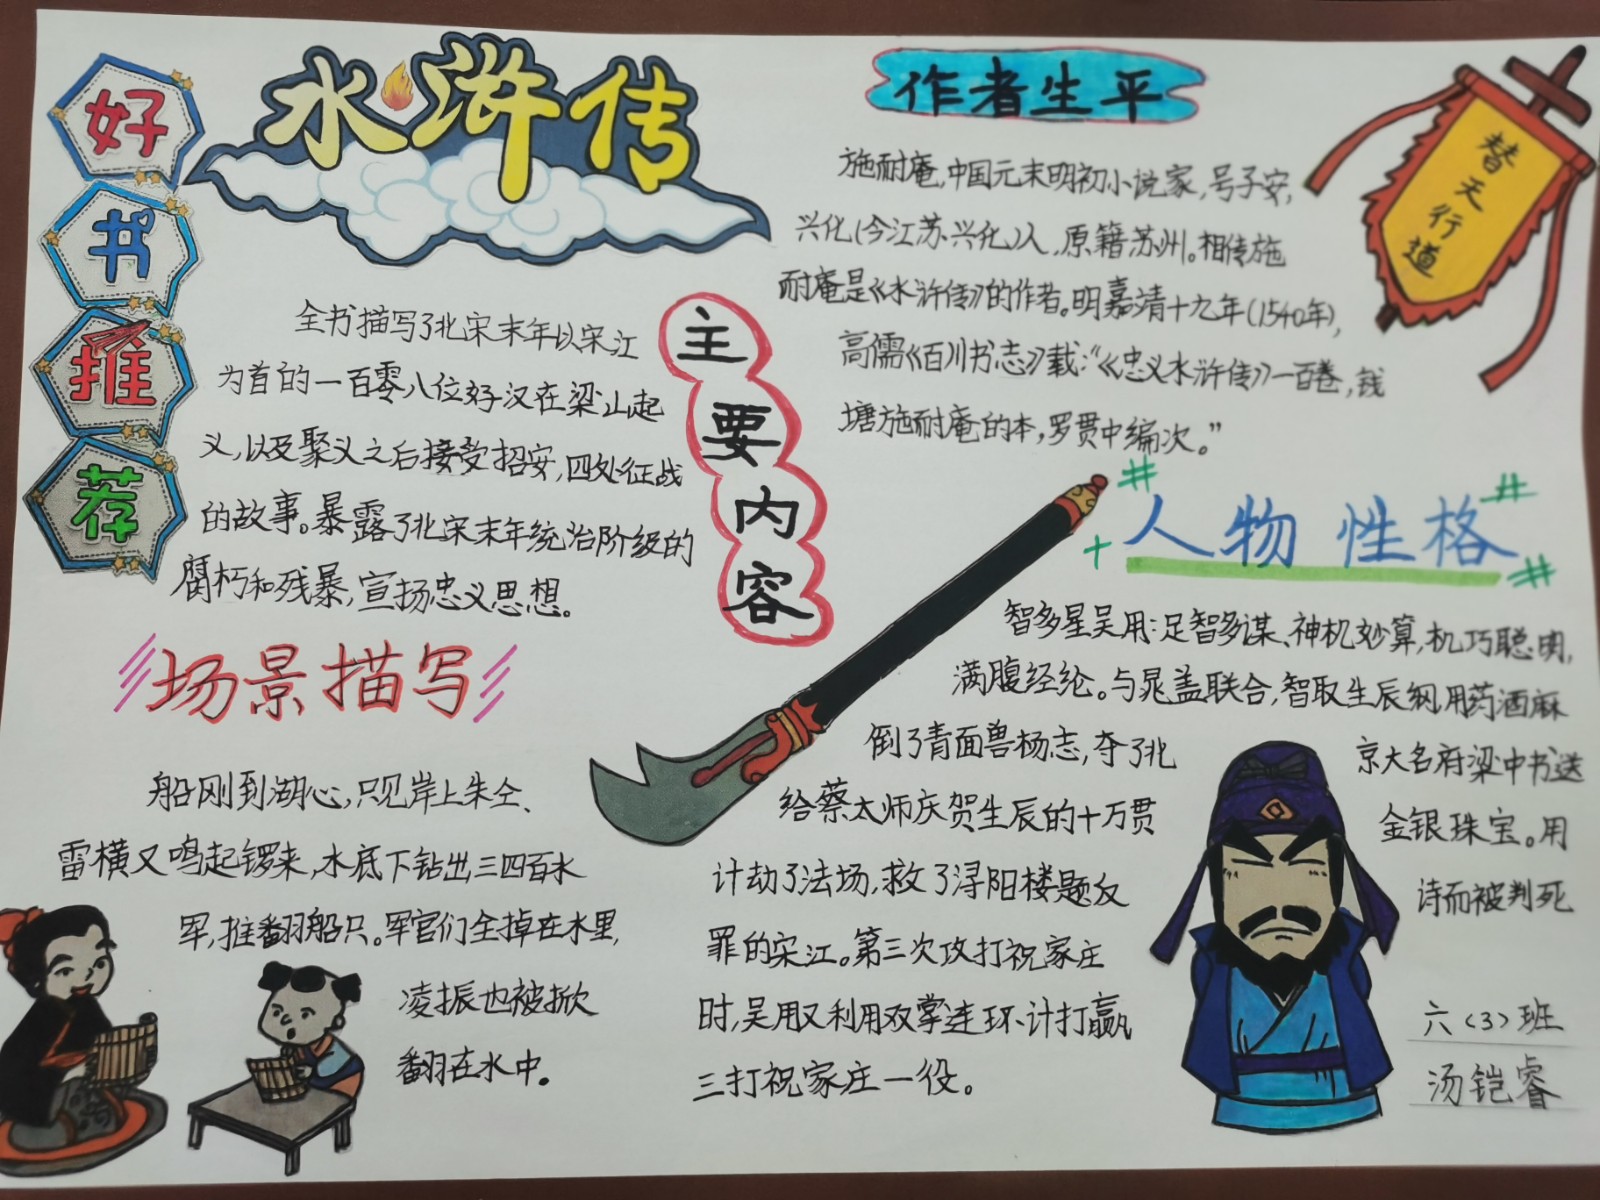 好
书
推
荐
水浒传
全书描写了北宋末年以宋江
为首的一百零八位好汉在梁山起
义,以及聚义之后接受招安,四处征战
的故事。暴露了北宋末年统治阶级的
腐朽和残暴,宣扬忠义思想。
主
要
内
容
作者生平
施耐庵,中国元末明初小说家,号子安,
兴化(今江苏兴化)人,原籍苏州。相传施
耐庵是《水浒传》的作者。明嘉靖十九年(1540年),
高儒《百川书志》载:“《忠义水浒传》一百卷,钱
塘施耐庵的本,罗贯中编次。”
替天行道
场景描写
船刚到湖心,只见岸上朱仝、
雷横又鸣起锣来,水底下钻出三四百水
军,推翻船只。军官们全掉在水里,
凌振也被掀
翻在水中。
人物性格
智多星吴用:足智多谋、神机妙算,机巧聪明,
满腹经纶。与晁盖联合,智取生辰纲,用药酒麻
倒了青面兽杨志,夺了北京大名府梁中书送
给蔡太师庆贺生辰的十万贯金银珠宝。用
计劫了法场,救了浔阳楼题反诗而被判死
罪的宋江。第三次攻打祝家庄
时,吴用又利用双掌连环计打赢
三打祝家庄一役。
六(3)班
汤铠睿